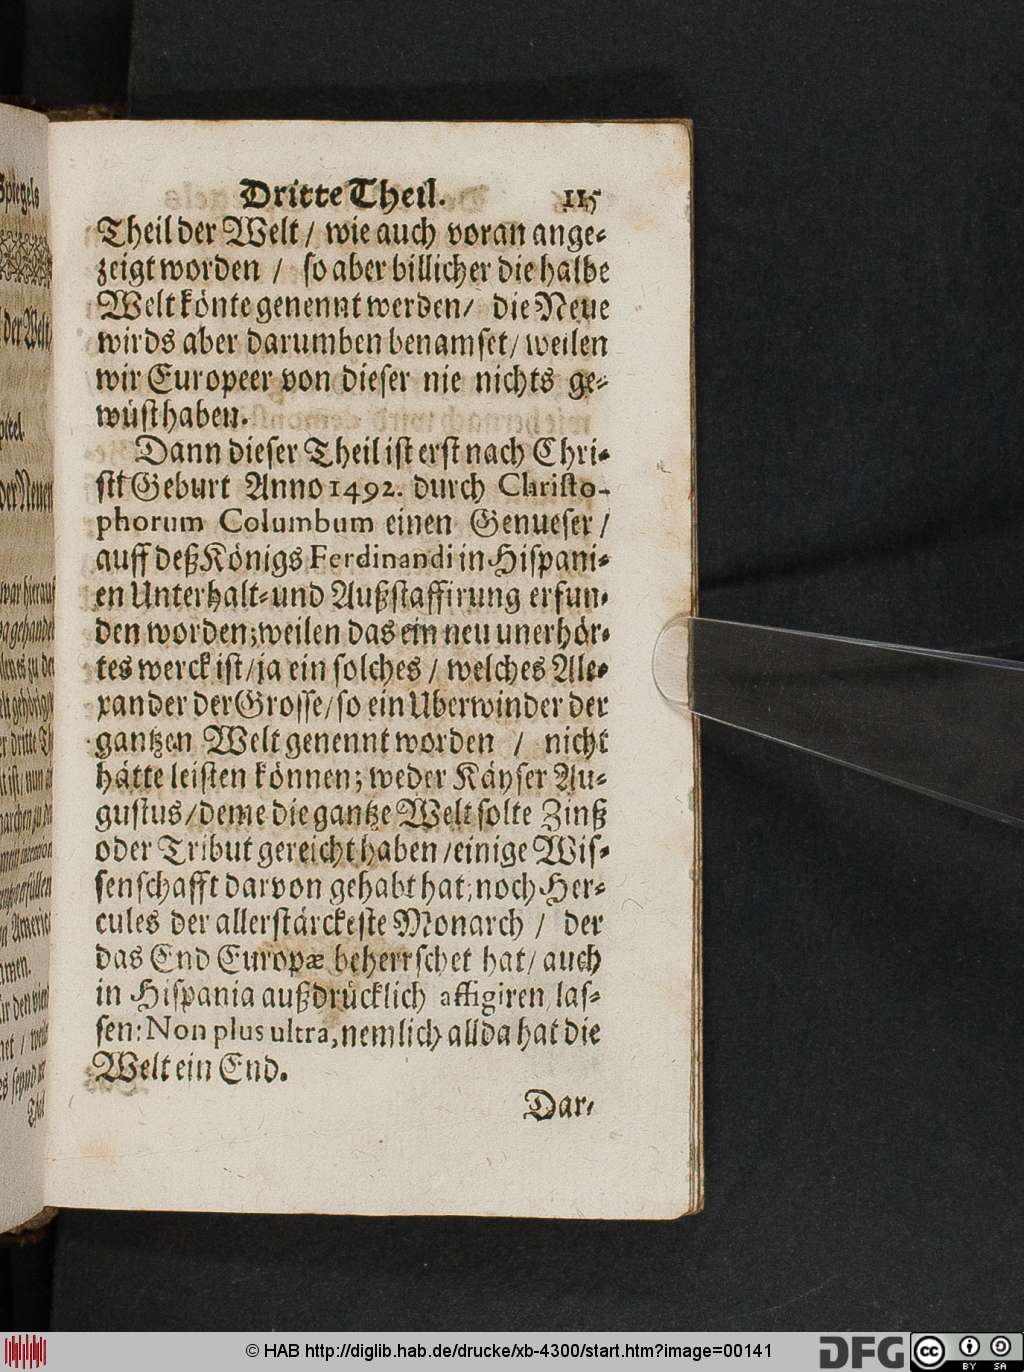 Dritte Theil. 115
Theil der Welt / wie auch voran ange-
zeigt worden / so aber billicher die halbe
Welt könte genennt werden / die Neue
wirds aber darumben benamset / weilen
wir Europeer von dieser nie nichts ge-
wüst haben.
Dann dieser Theil ist erst nach Chri-
sti Geburt Anno 1492. durch Christo-
phorum Columbum einen Genueser /
auff deß Königs Ferdinandi in Hispani-
en Unterhalt- und Außstaffirung erfun-
den worden; weilen das ein neu unerhör-
tes werck ist / ja ein solches / welches Ale-
xander der Grosse / so ein Uberwinder der
gantzen Welt genennt worden / nicht
hätte leisten können; weder Käyser Au-
gustus / deme die gantze Welt solte Zinß
oder Tribut gereicht haben / einige Wis-
senschafft darvon gehabt hat; noch Her-
cules der allerstärckeste Monarch / der
das End Europæ beherrschet hat / auch
in Hispania außdrücklich affigiren las-
sen: Non plus ultra, nemlich allda hat die
Welt ein End.
Dar-
Spiegels
der Welt
pitel.
der Neuen
© HAB http://diglib.hab.de/drucke/xb-4300/start.htm?image=00141
DFG
cc BY SA